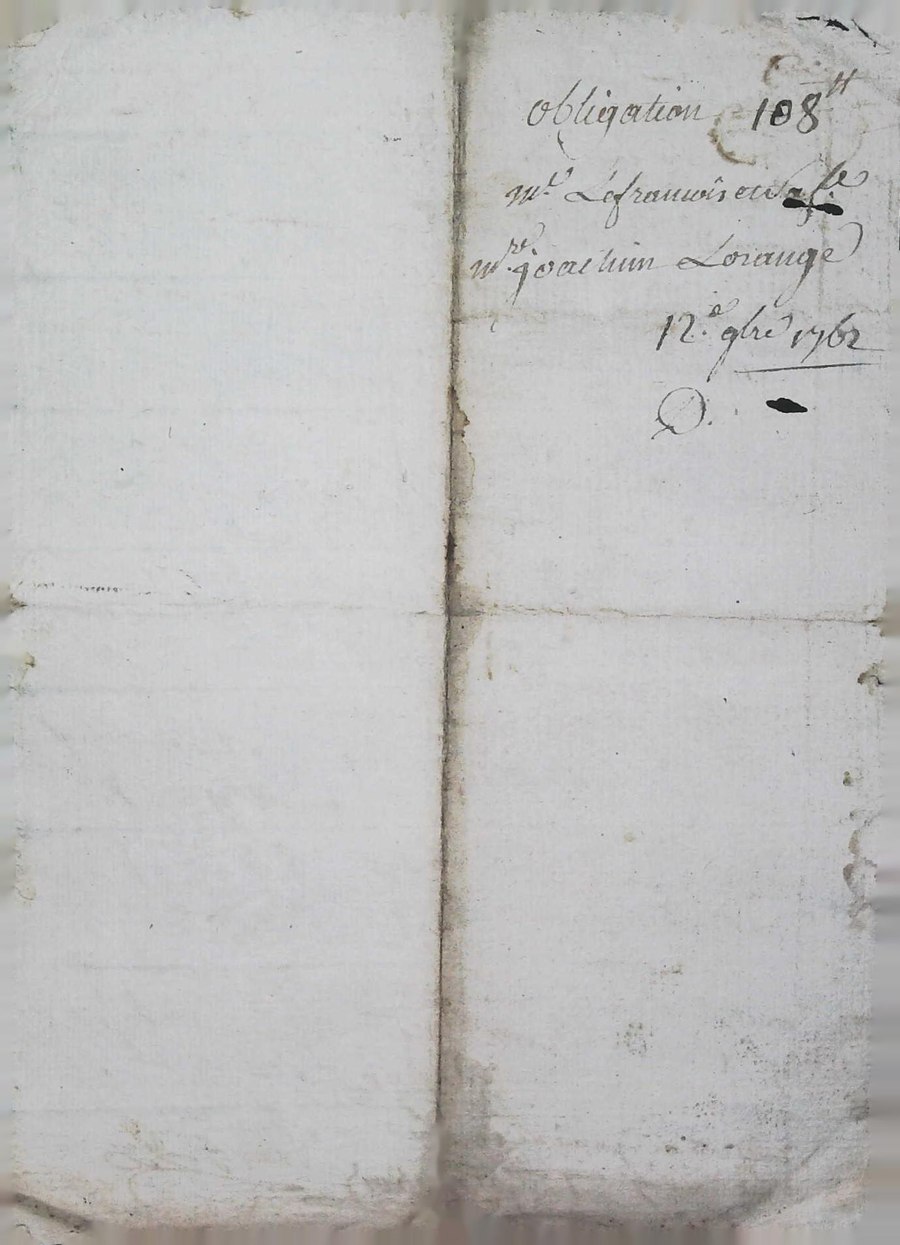 obligation 108 ₶
mr. Lefrancois
mre. joachim Lorange
12.e 9bre 1762
D.